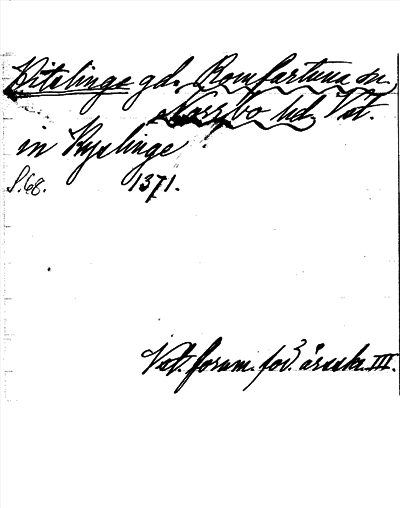 Kitslinge gd. Romfartuna sn.
Norrbo hd, Vst.
in Kyslinge
S. 68. 1371.
Vst. fornm. för:s årsskr III.